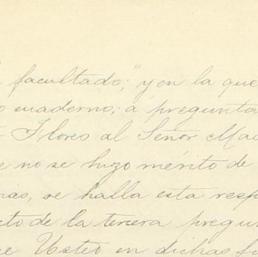 facultado;" y en la que
cuaderno; a pregunta
Flores al Señor Mac
no se hizo mérito de
se halla esta resp
to de la tercera pregu
Usted en dichas fo